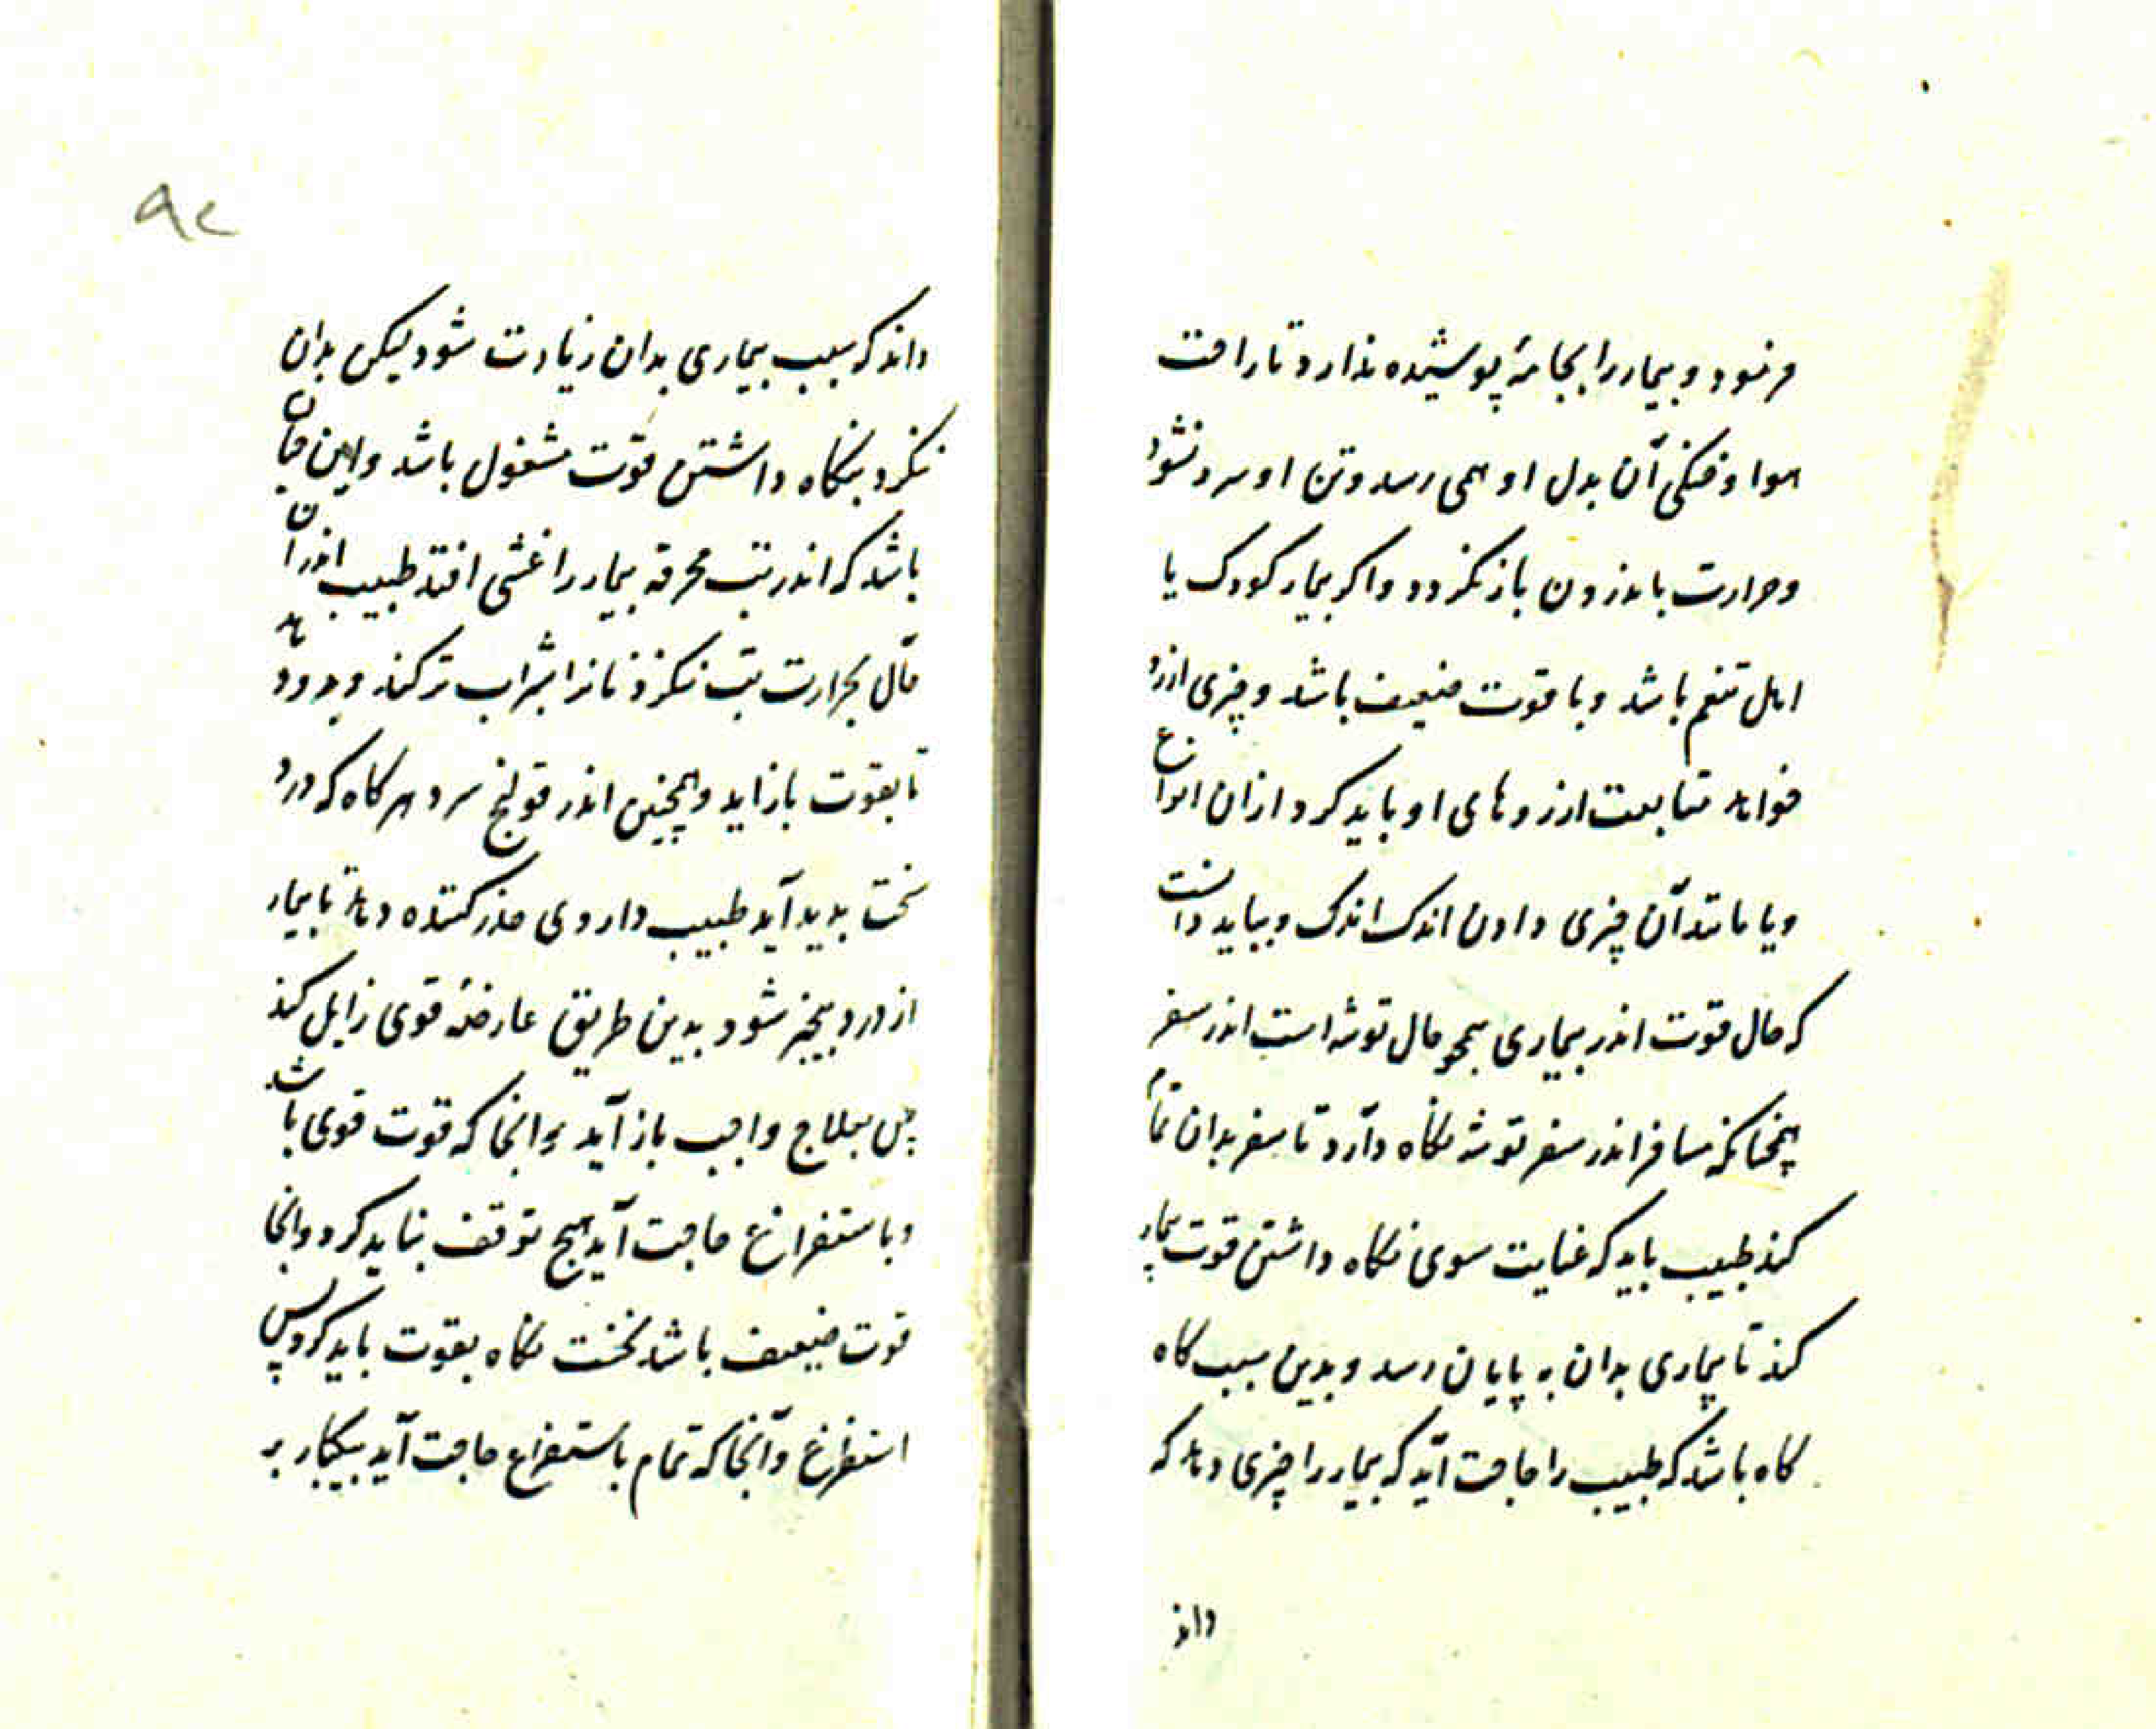 فرمود و بیمار را بجامهٔ پوشیده ندارد تا راحت
هوا و خنکی آن بدل او همی رسد و تن او سرد نشود
و حرارت باندرون باز نگردد و اگر بیمار کودک یا
اهل تنعم باشد و یا قوت ضعیف باشد و چیزی ارزو
خواهد متابعت ارزوهای او باید کرد از ان انواع
و یا مانند آن چیزی دادن اندک اندک و بباید دانست
که حال قوت اندر بیماری همچو حال توشه است اندر سفر
همچنانکه مسافر اندر سفر توشه نکاه دارد تا سفر بدان تمام
کند طبیب باید که عنایت سوی نکاه داشتن قوت بیمار
کند تا بیماری بدان به پایان رسد و بدین سبب کاه
کاه باشد که طبیب را حاجت آید که بیمار را چیزی دهد که
داند
۹۲
داند که سبب بیماری بدان زیادت شود لیکن بدان
نکرد بنکاه داشتن قوت مشغول باشد و این چنان
باشد که اندر تب محرقه بیمار را غشی افتد طبیب اندر ان
حال بحرارت تب ننکرذ نانرا بشراب تر کند و بدو دهد
تا بقوت باز اید و همچنین اندر قولنج سرد هر کاه که درد
سخت بدید آید طبیب داروی مخدر کننده دهد تا بیمار
از درد بیخبر شود بدین طریق عارضهٔ قوی زایل کند
پس بعلاج واجب باز آید و انجا که قوت قوی باشد
و باستفراغ حاجت آید هیچ توقف نباید کرد و انجا
قوت ضعیف باشد نخست نکاه بقوت باید کرد پس
استفراغ و آنجا که تمام باستفراغ حاجت آید بیکبار به